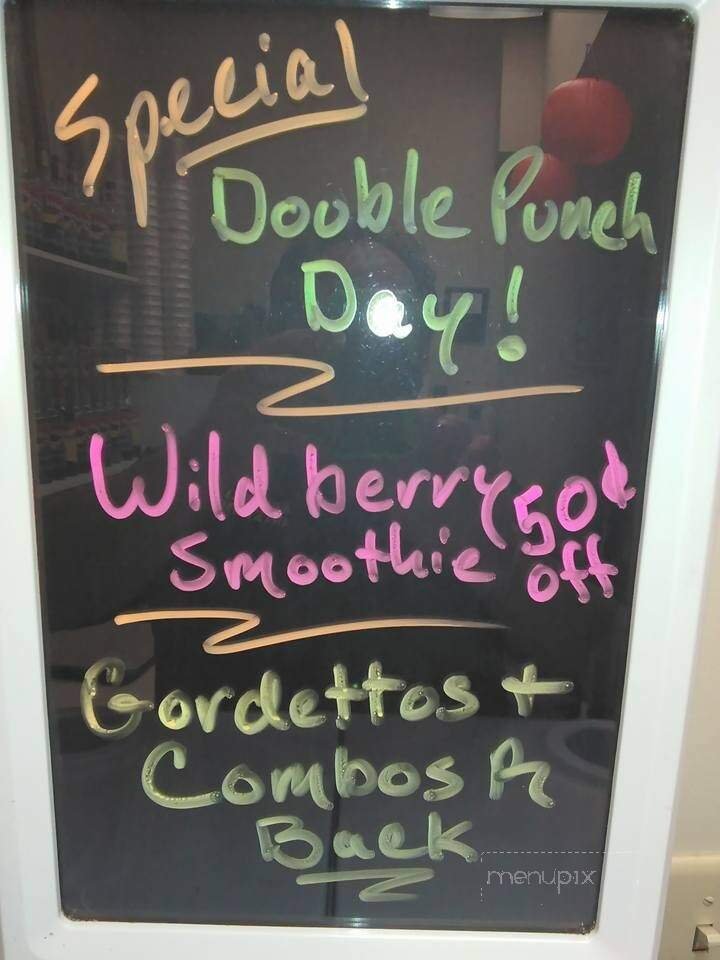 Special
Double Punch
Day!
Wild berry 50¢
Smoothie off
Gordettos +
Combos R
Back
menupix